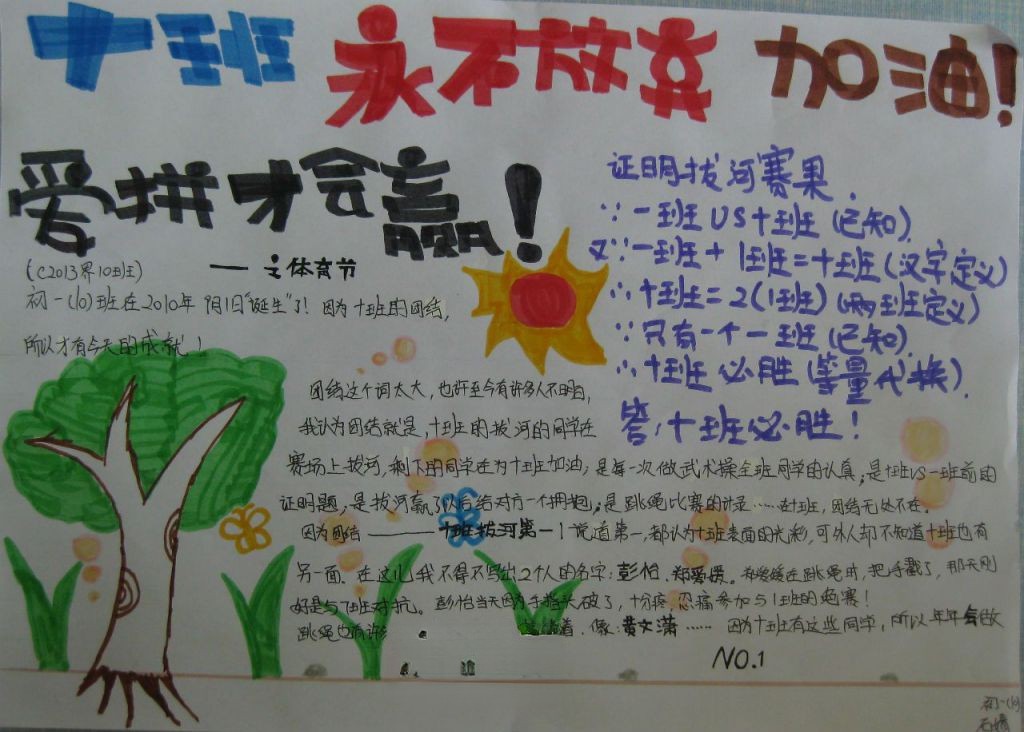 十班 永不放弃 加油!
爱拼才会赢!
——之体育节
(C2013界10班)
初一(10)班在2010年9月1日“诞生”了! 因为十班的团结,
所以才有今天的成就!
证明拔河赛果.
∵一班VS十班(已知)
又∵一班+1班=十班(汉字定义)
∴十班=2(1班)(两班定义)
∵只有一个一班(已知)
∴十班必胜(等量代换).
答:十班必胜!
团结这个词太大,也许至今有许多人不明白,
我认为团结就是,十班的拔河的同学在
赛场上拔河,剩下的同学在为十班加油;是每一次做武术操全班同学的认真;是十班VS一班前的
证明题,是拔河赢了以后给对方一个拥抱;是跳绳比赛的计
因为团结——十班拔河第一!说道第一,都认为十班表面的光彩,可外人却不知道十班也有
另一面.在这儿我不得不写出2个人的名字:彭怡.郑
好是与7班对抗。彭怡当天因为手指头破了,十分疼,忍痛参加与1班的
跳绳也有许
黄文潇……因为十班有这些同学,所以年年会做
NO.1
初一(10)